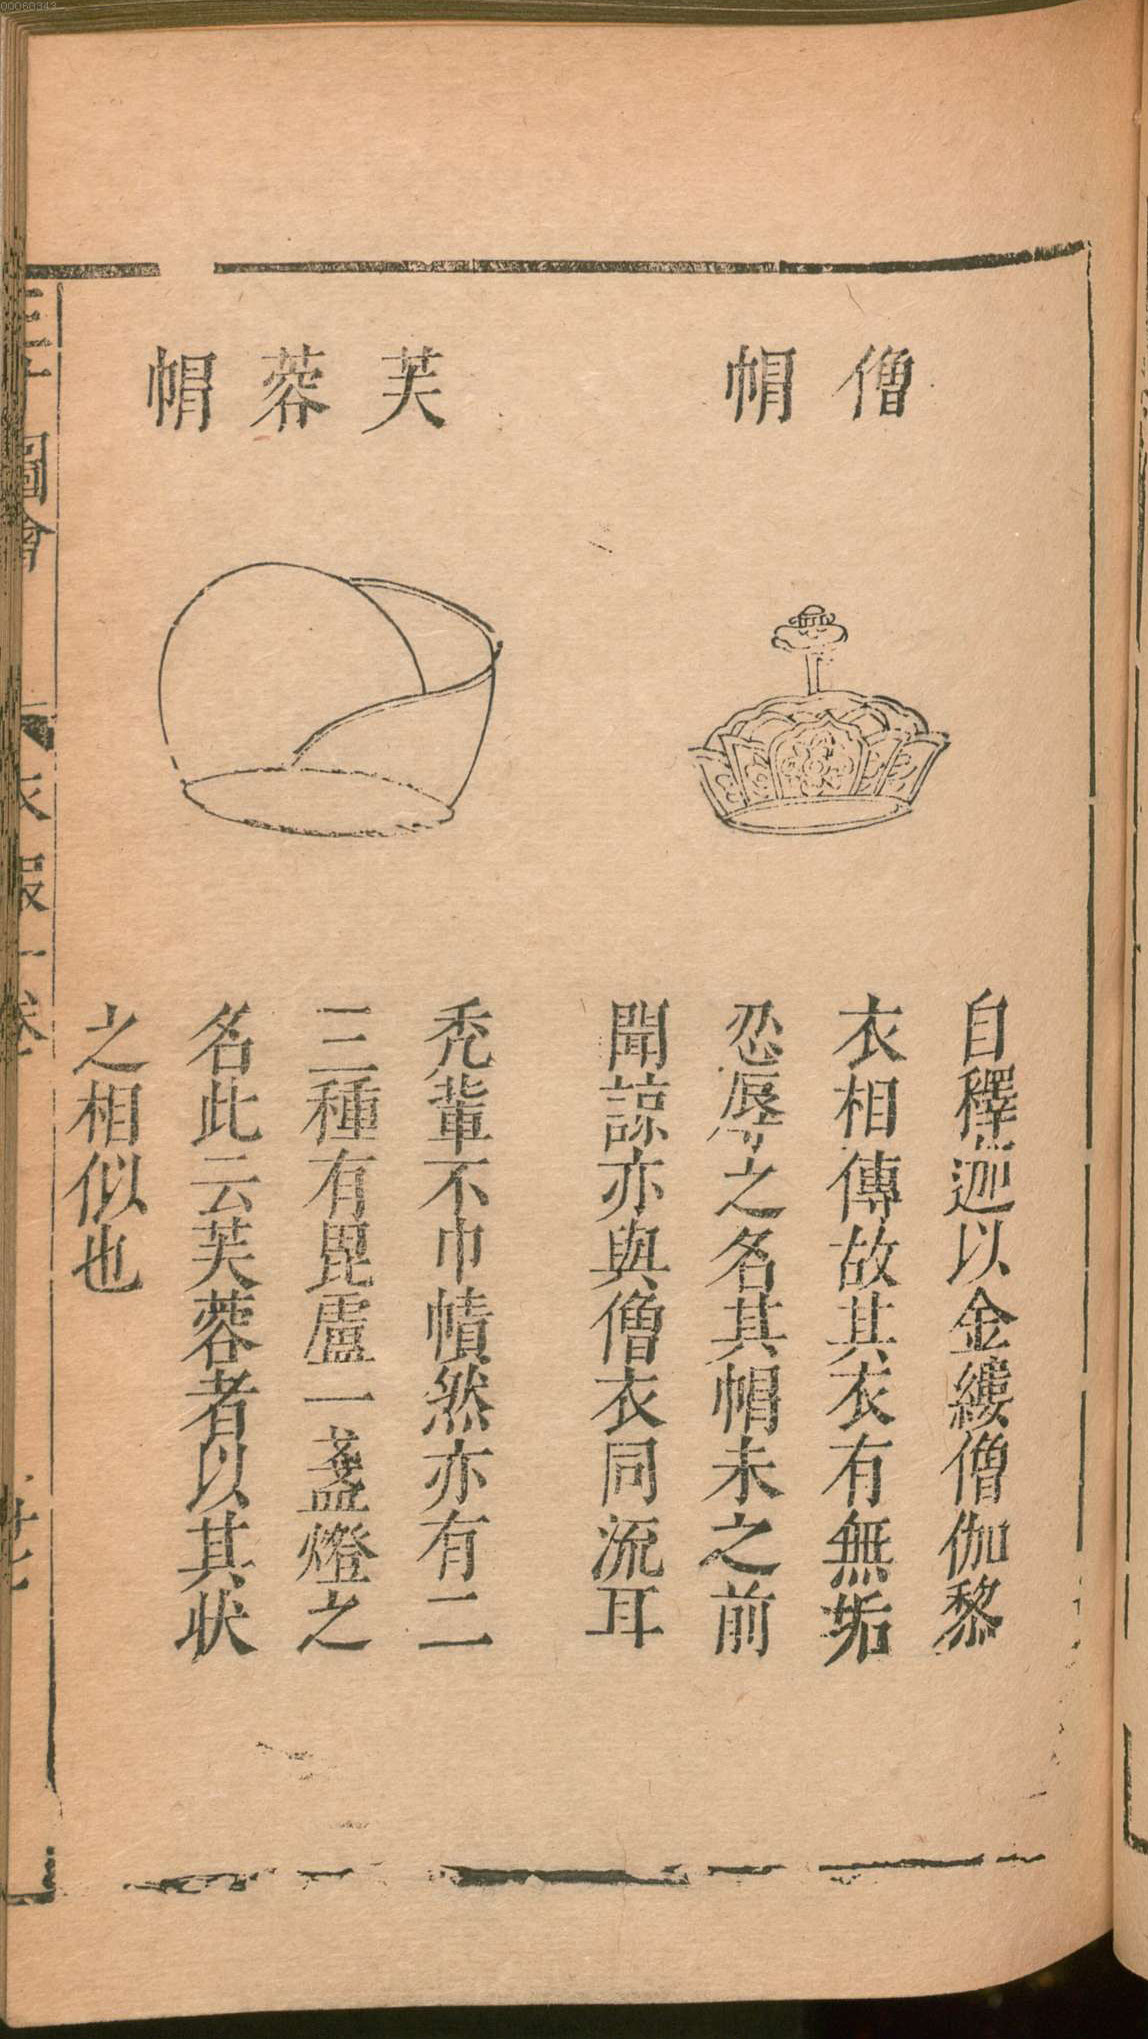 僧帽
自釋迦以金縷僧伽黎
衣相傳故其衣有無垢
忍辱之名其帽未之前
聞諒亦與僧衣同流耳
芙蓉帽
秃輩不巾幘然亦有二
三種有毘盧一盞燈之
名此云芙蓉者以其狀
之相似也
圖會
衣服一卷
00080343